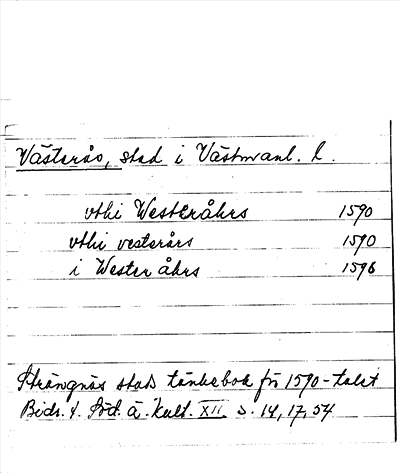 Västerås, stad i Västmanl. l.
vthi Westeråhrs 1590
vthi vesterårs 1590
i Wester åhrs 1596
Strängnäs stads tänkebok för 1590-talet
Bidr. t. Söd. ä. kult. XII s. 14, 17, 54